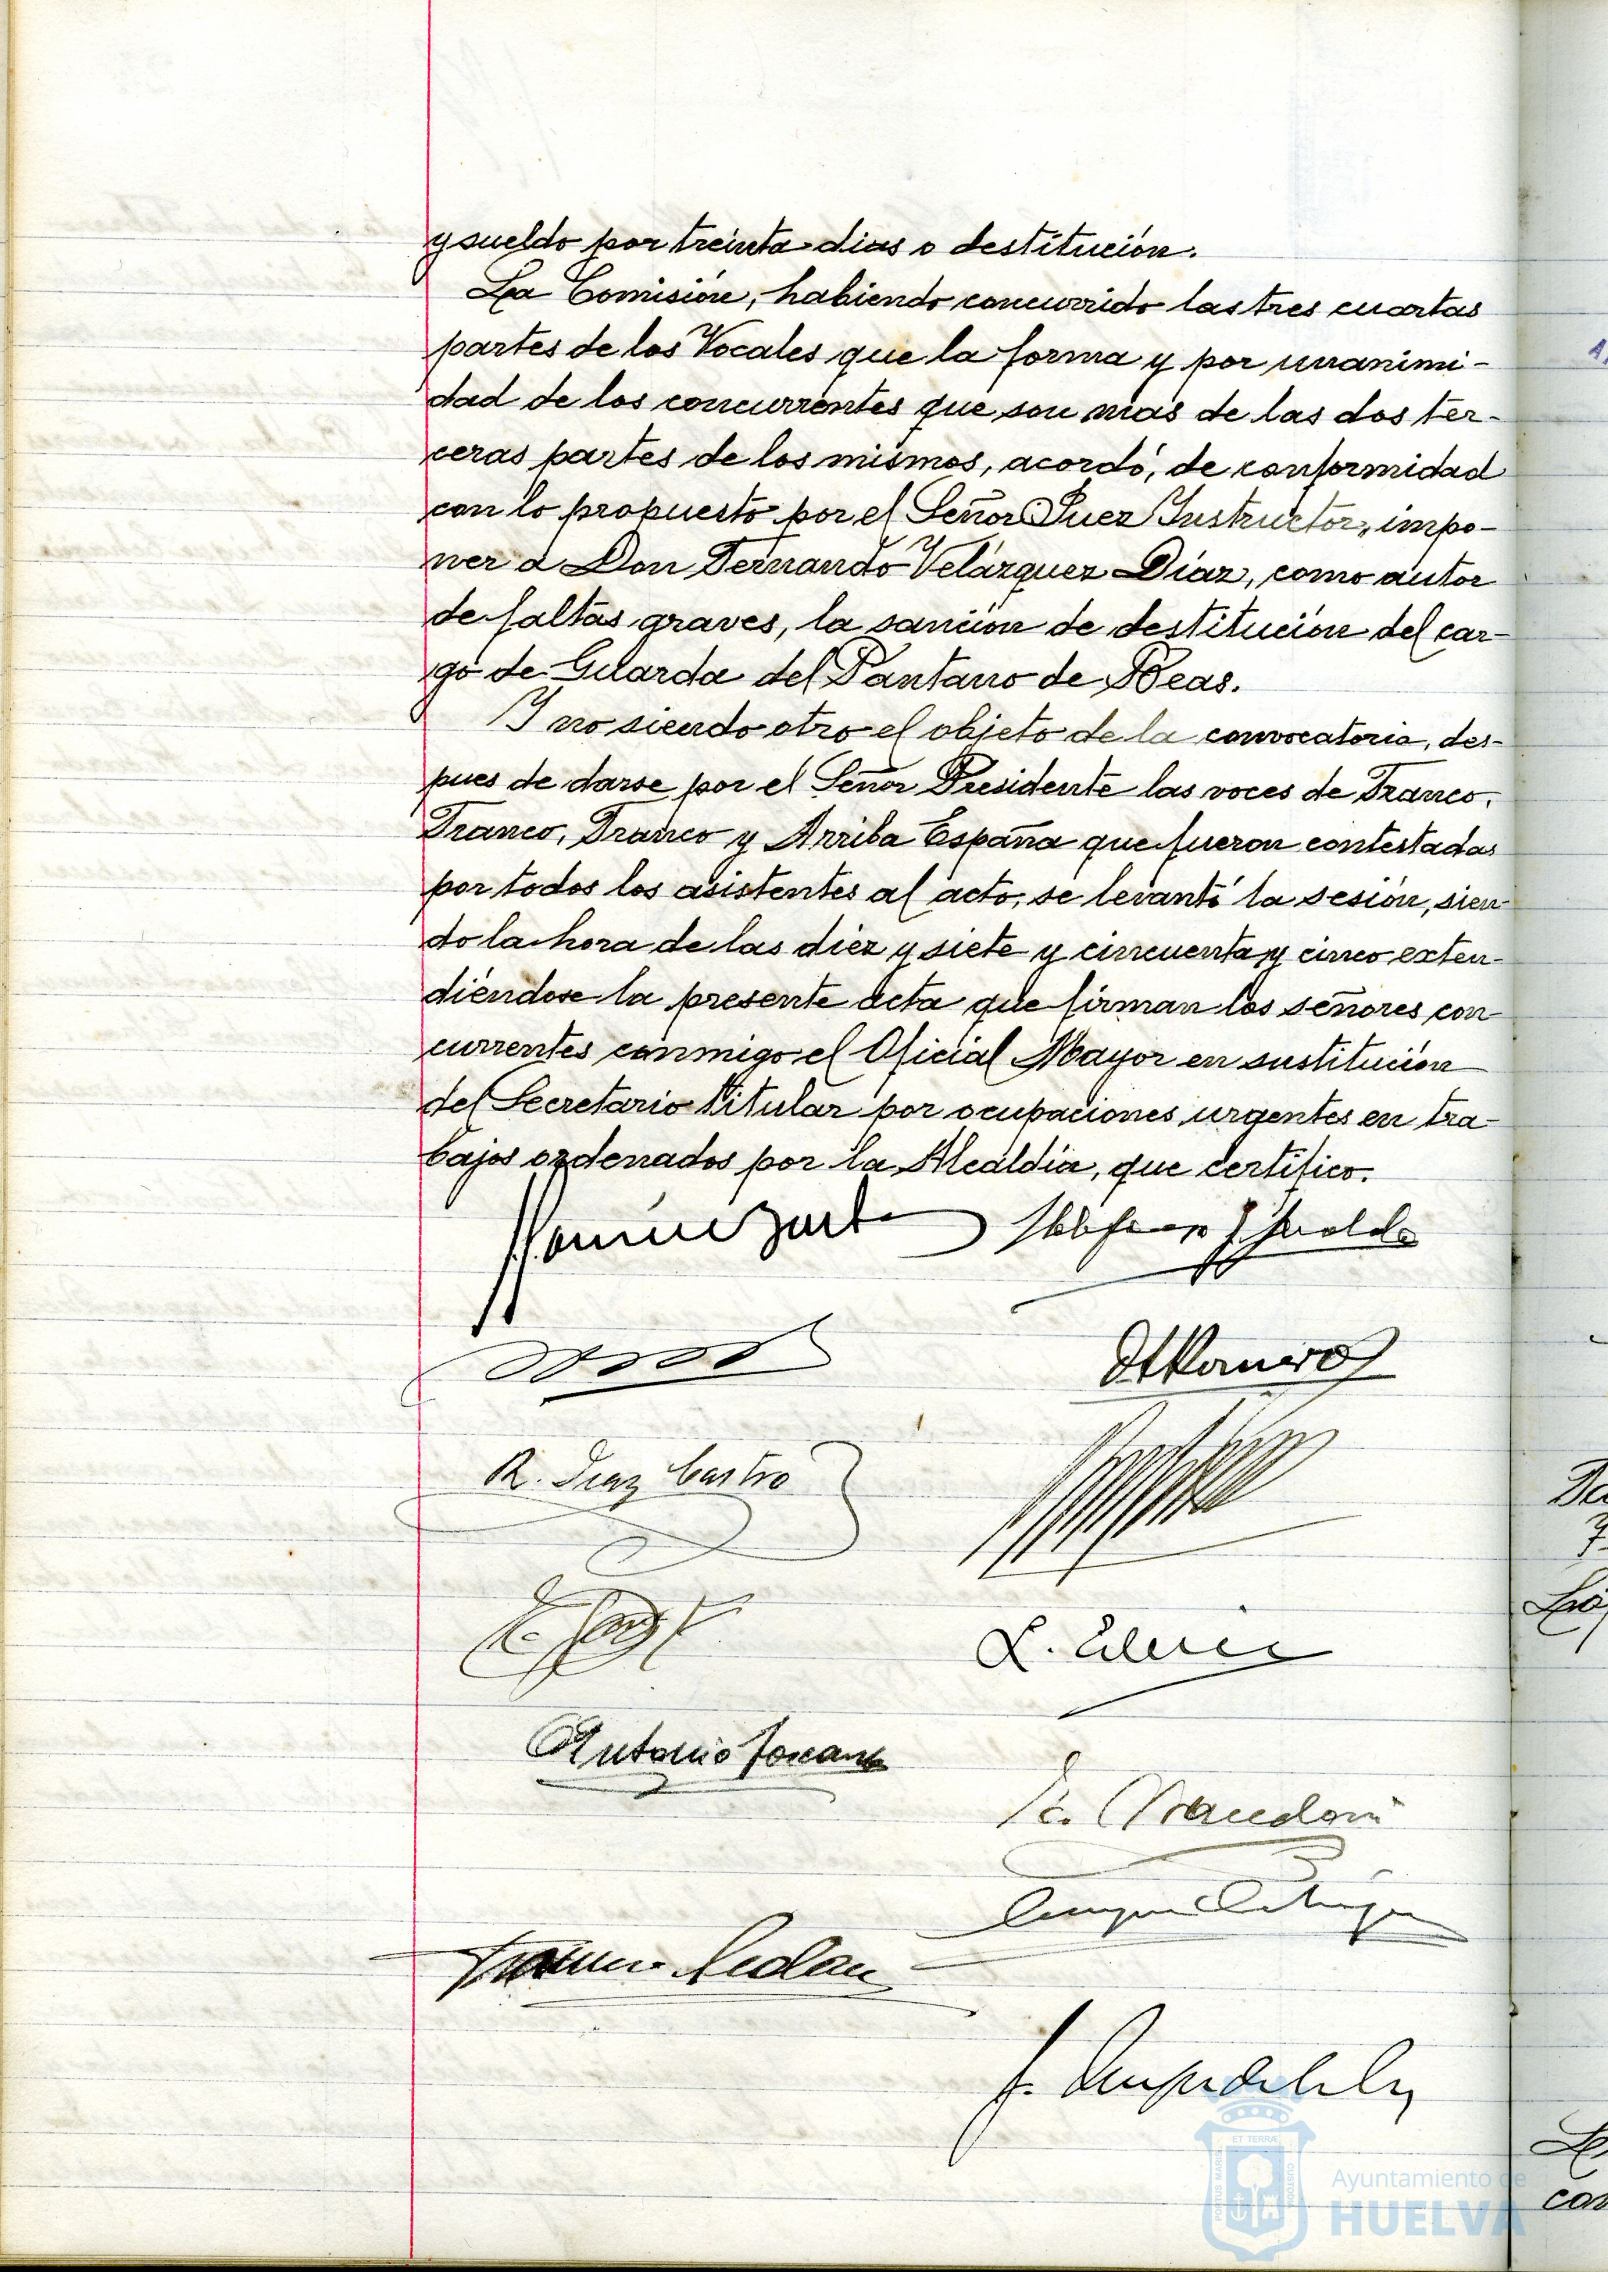 y sueldo por treinta dias o destitución.
La Comisión, habiendo concurrido las tres cuartas
partes de los Vocales que la forma y por unanimi-
dad de los concurrentes que son mas de las dos ter-
ceras partes de los mismos, acordó, de conformidad
con lo propuesto por el Señor Juez Instructor, impo-
ner a Don Fernando Velázquez Díaz, como autor
de faltas graves, la sanción de destitución del car-
go de Guarda del Pantano de Beas.
Y no siendo otro el objeto de la convocatoria, des-
pues de darse por el Señor Presidente las voces de Franco,
Franco, Franco y Arriba España que fueron contestadas
por todos los asistentes al acto, se levantó la sesión, sien-
do la hora de las diez y siete y cincuenta y cinco exten-
diéndose la presente acta que firman los señores con-
currentes conmigo el Oficial Mayor en sustitución
del Secretario titular por ocupaciones urgentes en tra-
bajos ordenados por la Alcaldía, que certifico.
R. Diaz Castro
Antonio Toscano
ET TERRÆ
PORTUS MARIS
CUSTODIA
Ayuntamiento de
HUELVA